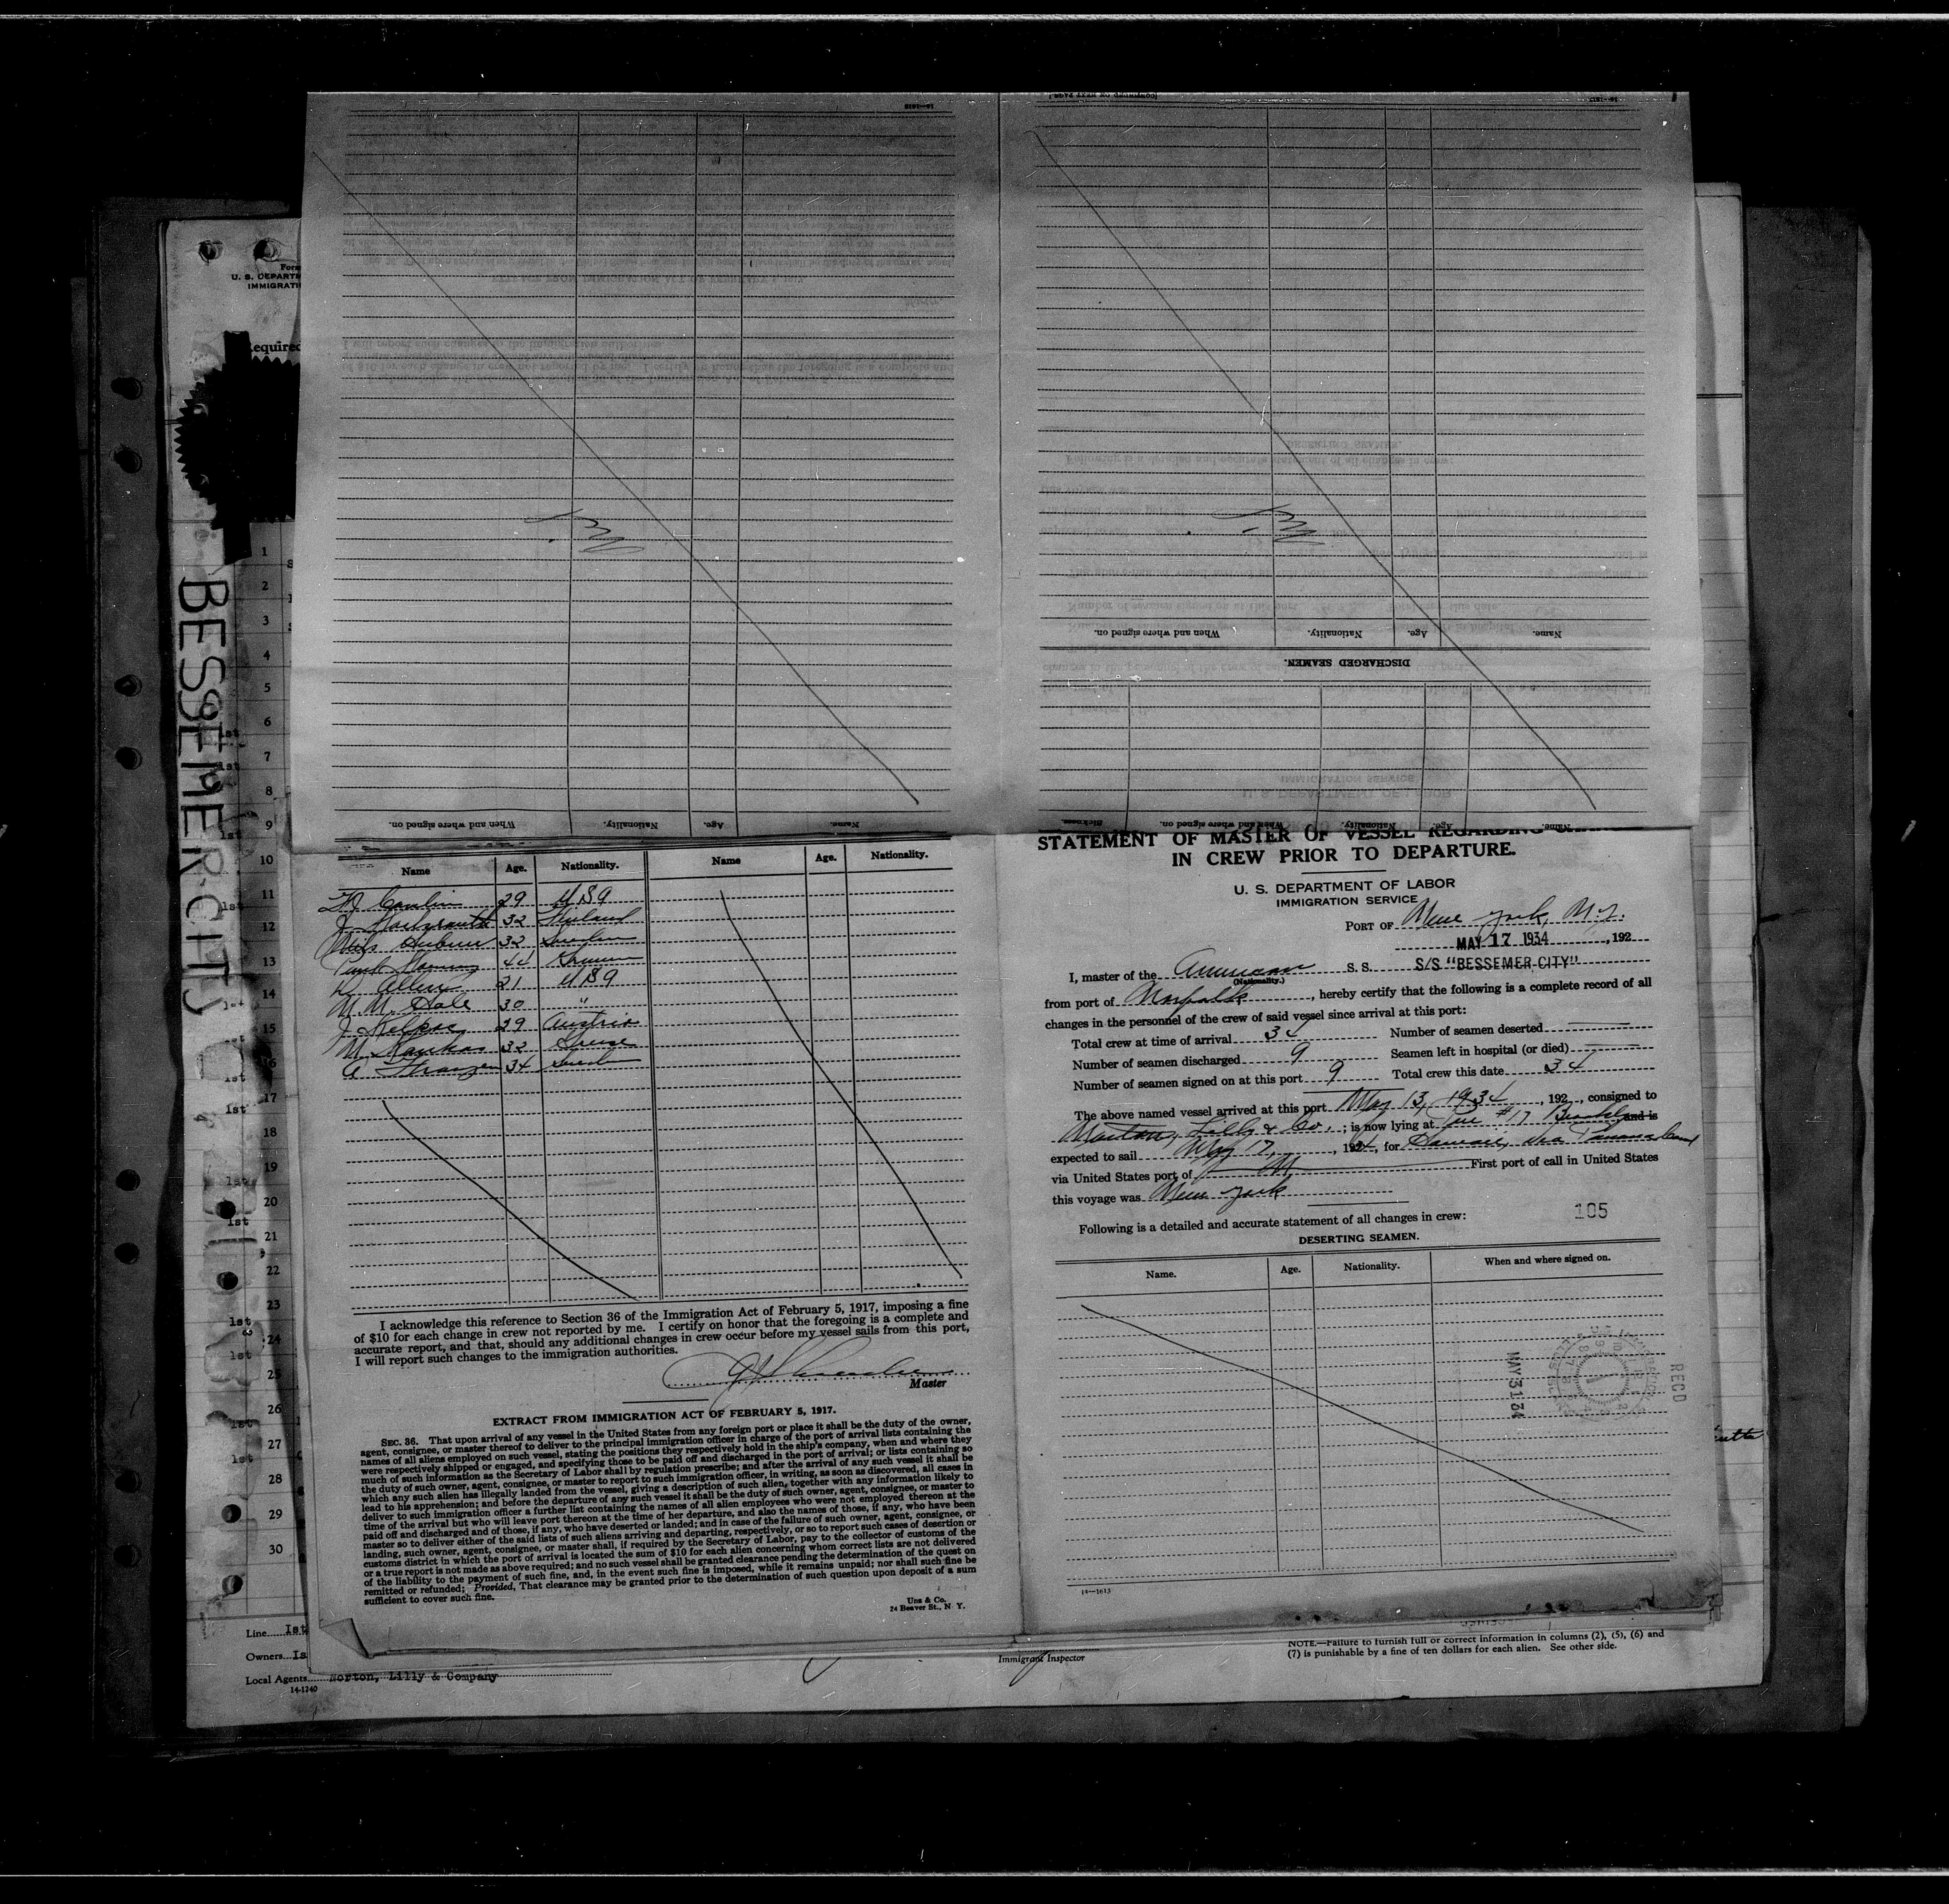 Form
U. S. DEPARTM
IMMIGRATI
Required
BESSEMER CITY
1
2
3
4
5
6
7
8
9
10
11
12
13
14
15
16
17
18
19
20
21
22
23
24
25
26
27
28
29
30
1st
1st
1st
1st
1st
1st
1st
1st
1st
1st
1st
1st
1st
1st
DISCHARGED SEAMEN.
Name. Age. Nationality. When and where signed on.
Name. Age. Nationality. When and where signed on.
Name. Age. Nationality. When and where signed on. Sickness.
Name Age. Nationality. Name Age. Nationality.
29 USA
J 32
Nils 32 Sweden
44 German
D Allen 21 USA
M. M. Dale 30 "
J 29 Austria
M 32 Greece
34
I acknowledge this reference to Section 36 of the Immigration Act of February 5, 1917, imposing a fine
of $10 for each change in crew not reported by me. I certify on honor that the foregoing is a complete and
accurate report, and that, should any additional changes in crew occur before my vessel sails from this port,
I will report such changes to the immigration authorities.
Master
EXTRACT FROM IMMIGRATION ACT OF FEBRUARY 5, 1917.
SEC. 36. That upon arrival of any vessel in the United States from any foreign port or place it shall be the duty of the owner,
agent, consignee, or master thereof to deliver to the principal immigration officer in charge of the port of arrival lists containing the
names of all aliens employed on such vessel, stating the positions they respectively hold in the ship's company, when and where they
were respectively shipped or engaged, and specifying those to be paid off and discharged in the port of arrival; or lists containing so
much of such information as the Secretary of Labor shall by regulation prescribe; and after the arrival of any such vessel it shall be
the duty of such owner, agent, consignee, or master to report to such immigration officer, in writing, as soon as discovered, all cases in
which any such alien has illegally landed from the vessel, giving a description of such alien, together with any information likely to
lead to his apprehension; and before the departure of any such vessel it shall be the duty of such owner, agent, consignee, or master to
deliver to such immigration officer a further list containing the names of all alien employees who were not employed thereon at the
time of the arrival but who will leave port thereon at the time of her departure, and also the names of those, if any, who have been
paid off and discharged and of those, if any, who have deserted or landed; and in case of the failure of such owner, agent, consignee, or
master so to deliver either of the said lists of such aliens arriving and departing, respectively, or so to report such cases of desertion or
landing, such owner, agent, consignee, or master shall, if required by the Secretary of Labor, pay to the collector of customs of the
customs district in which the port of arrival is located the sum of $10 for each alien concerning whom correct lists are not delivered
or a true report is not made as above required; and no such vessel shall be granted clearance pending the determination of the quest on
of the liability to the payment of such fine, and, in the event such fine is imposed, while it remains unpaid; nor shall such fine be
remitted or refunded; Provided, That clearance may be granted prior to the determination of such question upon deposit of a sum
sufficient to cover such fine.
Uns & Co.
24 Beaver St., N Y.
STATEMENT OF MASTER OF VESSEL REGARDING
IN CREW PRIOR TO DEPARTURE.
U. S. DEPARTMENT OF LABOR
IMMIGRATION SERVICE
PORT OF New York, N.Y.
MAY 17 1934, 192
I, master of the American S. S. S/S "BESSEMER CITY"
(Nationality.)
from port of Norfolk, hereby certify that the following is a complete record of all
changes in the personnel of the crew of said vessel since arrival at this port:
Total crew at time of arrival 34 Number of seamen deserted
Number of seamen discharged 9 Seamen left in hospital (or died)
Number of seamen signed on at this port 9 Total crew this date 34
The above named vessel arrived at this port May 13, 1934, 192, consigned to
Norton, Lilly & Co.; is now lying at Pier #17 Brooklyn and is
expected to sail May 17, 1934, for Hawaii, via Panama Canal
via United States port of First port of call in United States
this voyage was New York
Following is a detailed and accurate statement of all changes in crew:
105
DESERTING SEAMEN.
Name. Age. Nationality. When and where signed on.
MAY 31 34
RECD
14—1613
Line Ist
Owners Is
Local Agents Norton, Lilly & Company
14-1240
Immigrant Inspector
NOTE.—Failure to furnish full or correct information in columns (2), (5), (6) and
(7) is punishable by a fine of ten dollars for each alien. See other side.